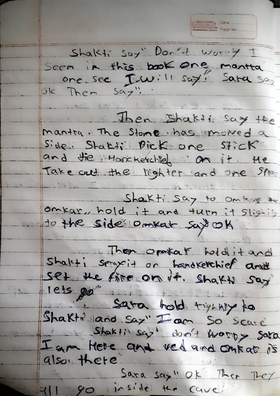 Shakti say" Don't worry I
seen in this book one mantra
one. see I.will say". Sara say
ok Then say".
Then Shakti say the
mantra. The Stone has moved a
side. Shakti Pick one Stick
and tie Hankerchief on it He
Take out the lighter and one Spr
Shakti Say to omkar
omkar,, hold it and turn it slight
to the side omkar say OK
Then omkar hold it and
Shakti spray it on handkerchief and
set the fire on it. Shakti say
lets go"
Sara hold tightly to
Shakti and say" I am So scare
Shakti say" don't worry Sara
I am Here and ved and omkar is
also there
Sara say" OK Then They
all go inside the cave.